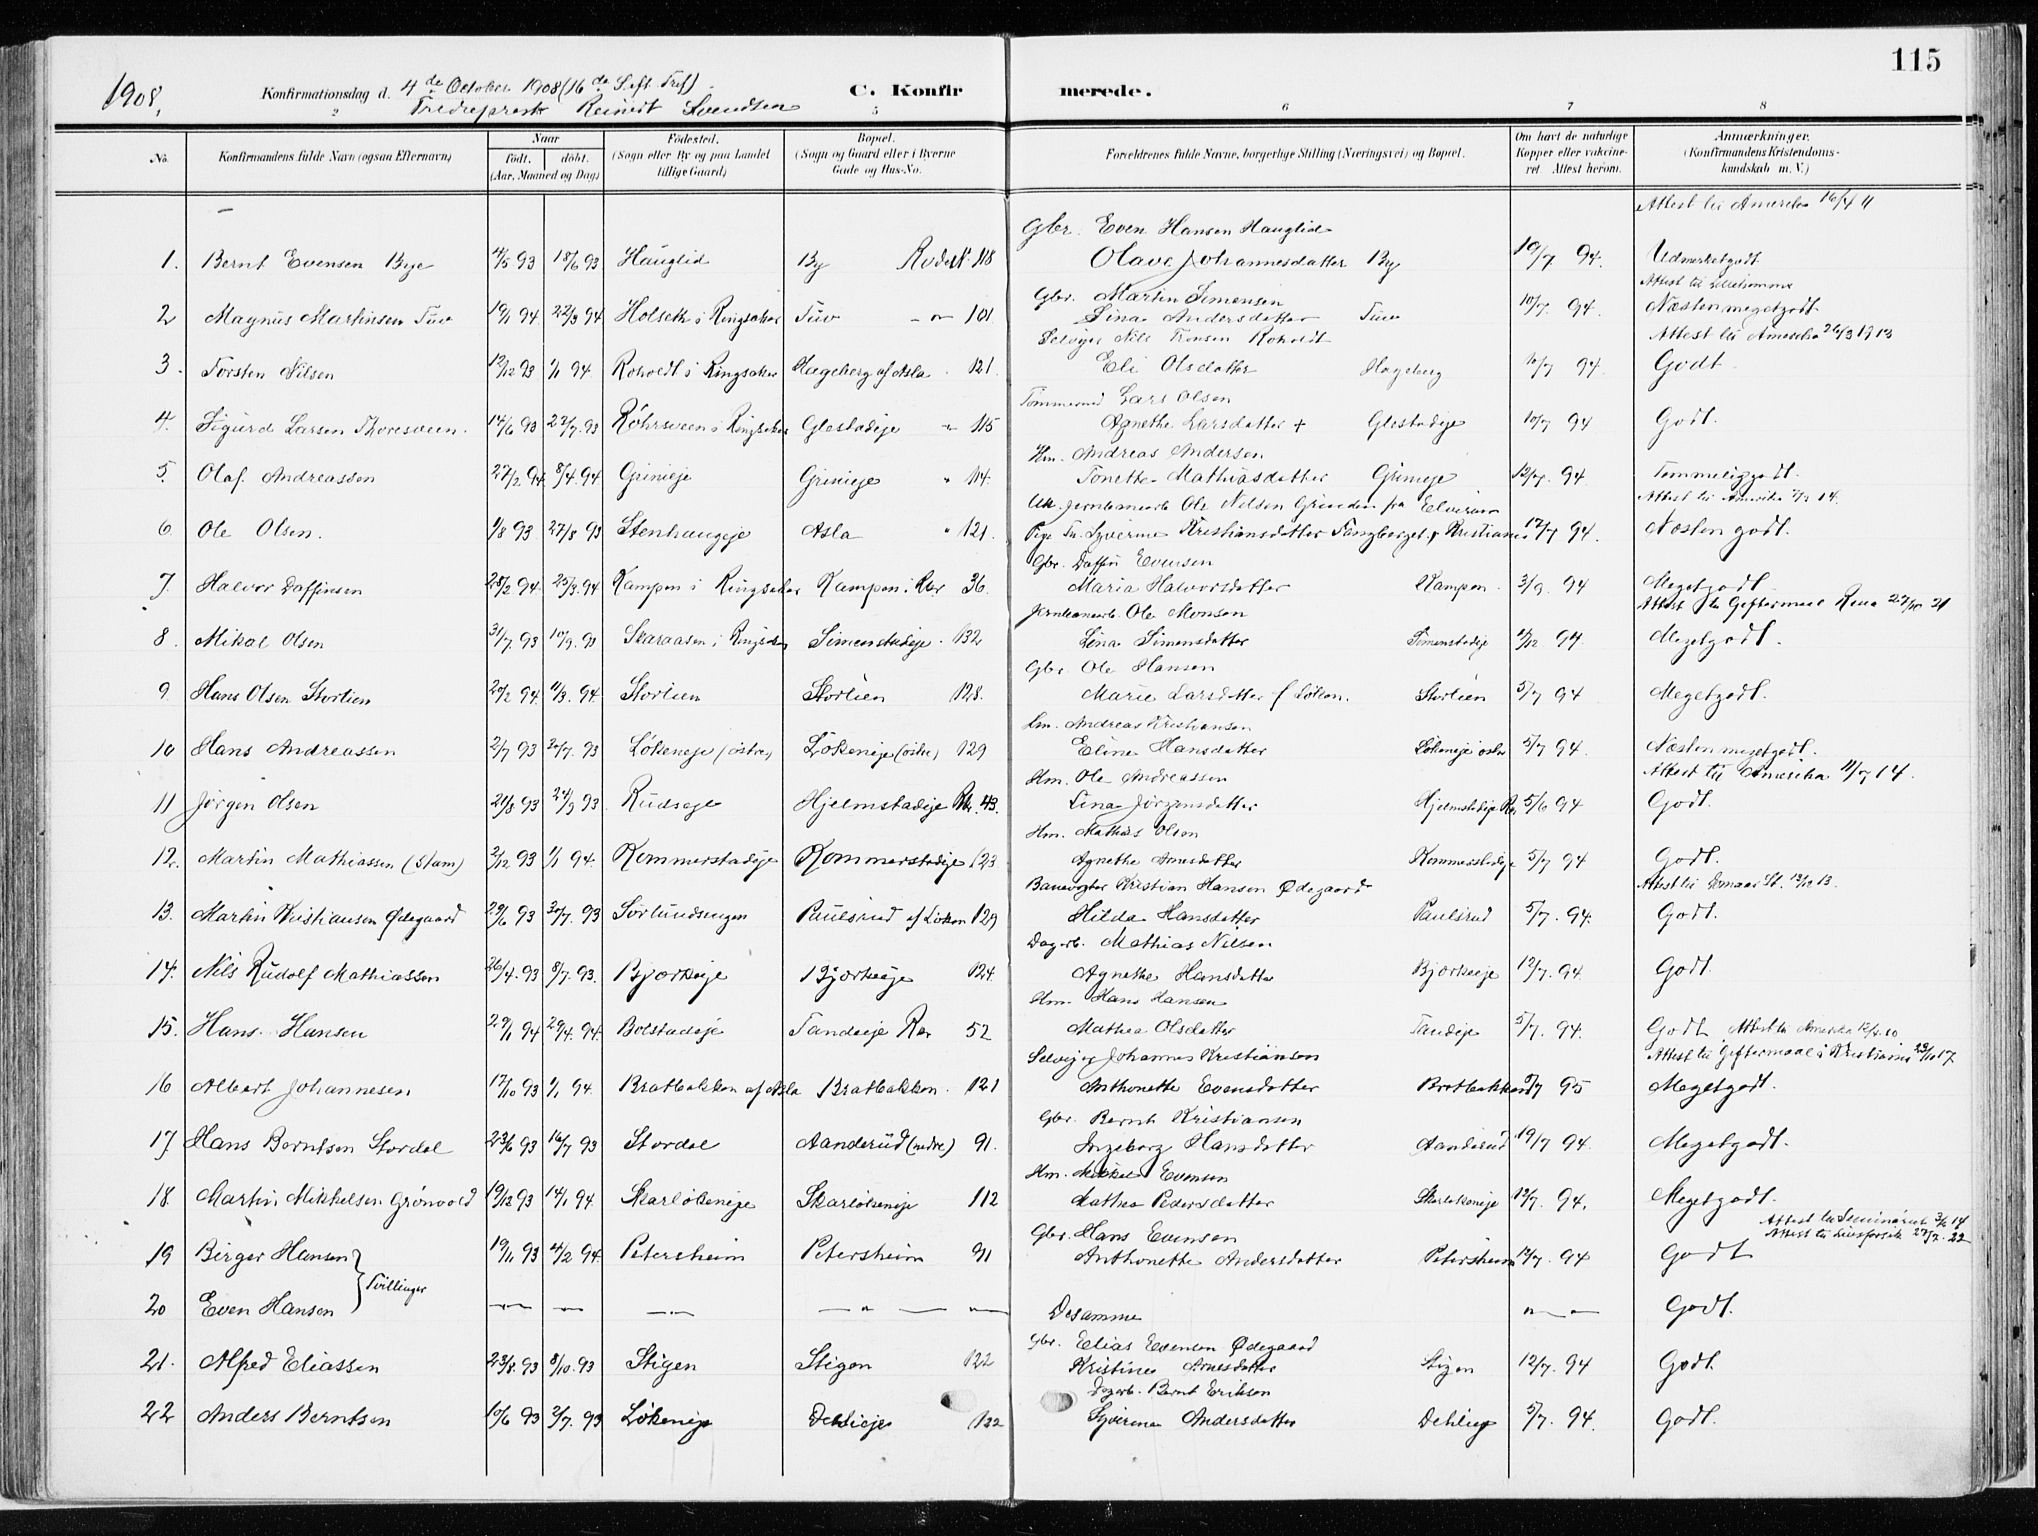 115
1908. Konfirmationsdag d. 4de October 1908 (16de S. eft. Tref) C. Konfirmerede.
Reinert Svendsen
1 2 5 6 7 8
No. Konfirmandens fulde Navn (ogsaa Efternavn) Naar født. døbt. (Aar, Maaned og Dag) Fødested. (Sogn eller By og paa Landet tillige Gaard) Bopæl. (Sogn og Gaard eller i Byerne Gade og Hus-No. Forældrenes fulde Navne, borgerlige Stilling (Næringsvei) og Bopæl. Om havt de naturlige Kopper eller vakcineret Attest herom. Anmærkninger. (Konfirmandens Kristendomskundskab m. V.)
Attest til Amerika 16/4 11
Gbr. Even Hansen Hauglid
1. Bernt Evensen Bye 18/6 93 Hauglid By 118 Olave Johannesdatter By 19/7 94. Udmerketgodt
Gbr. Martin Simensen
2 Magnus Martinsen Tuv 19/1 94 22/3 94 Holseth i Ringsaker Tuv 101 Lina Andersdatter Tuv 10/7 94. Næsten megetgodt
Attest til Amerika 26/3 1913
Selveier Nils Tronsen Roholdt
3. Torsten Nilsen 12/12 93 1/1 94 Roholdt i Ringsaker Hageberg af Asla 121. Eli Olsdatter Hageberg 10/7 94. Godt
Tømmermd Lars Olsen
4. Sigurd Larsen Thoresveen. 14/6 93 22/7. 93 Röhrsveen i Ringsaker Glestadeje 115 Agnethe Larsdatter + Glestadeje 10/7 94 Godt.
Hm. Andreas Andersen
5. Olaf Andreassen 27/2 94 8/4. 94 Grimeje Grimeje 114. Tonette Mathiasdatter Grimeje 12/7. 94. Temmeliggodt.
Attest til Amerika 14.
Jernbanearb. Ole Nilsen Grunden fra Elverum
6 Ole Olsen. 1/8 93 27/8 93 Stenhaugeje Asla 121. Kristiansdatter Kristiania 17/7 94. Næsten godt.
Gbr. Daffin Evensen
7. Halvor Daffinsen 28/2 94. 25/3. 94 Kampen i Ringsaker Kampen i. Rær 36. Maria Halvorsdatter Kampen. 3/9. 94 Megetgodt
Attest til Giftermaal Rena 27/10 21
Jernbanearb. Ole Monsen
8. Mikal Olsen 31/7. 93 10/9. 93 Skaraasen i Ringsaker Simenstadeje. 132 Lina Simensdatter Simenstadeje 94. Megetgodt.
Gbr. Ole Hansen
9 Hans Olsen Stortien 20/2 94. 11/3. 94. Stortien Stortien 128. Marie Larsdatter f Løken. Stortien 5/7 94 Megetgodt.
Hm. Andreas Kristiansen
10 Hans Andreassen 2/7 93 30/7. 93 Løkeneje (østre) Løkeneje (østre) 129 Eline Hansdatter Løkeneje østre 5/7 94. Næsten megetgodt.
Attest til Amerika 11/7 14.
Hm. Ole Andreassen
11 Jørgen Olsen 21/8 93 24/9 93 Rudseje Hjelmstadeje Rær. 43. Lina Jørgensdatter Hjelmstadeje Rær. 5/6 94 Godt.
Hm. Mathias Olsen
12. Martin Mathiassen (Stam) 2/12 93 1/1 94. Kommerstadeje Kommerstadeje 123 Agnethe Arnesdatter Kommerstadeje 5/7 94 Godt.
Banevogter Kristian Hansen Ødegaard
13. Martin Kristiansen Ødegaard 29/6 93 30/7. 93 Sørlundsengen Paulsrud af Løken 129 Hilda Hansdatter Paulsrud 5/7. 94. Godt.
Dagarb. Mathias Nilsen
14. Nils Rudolf Mathiassen 26/4. 93 8/7. 93. Bjørkeeje Bjørkeeje 124. Agnethe Hansdatter Bjørkeeje 12/7. 94. Godt.
Hm. Hans Hansen
15. Hans. Hansen 29/1 94 29/4. 94. Bolstadeje Tandeeje Rær 52 Mathea Olsdatter Tandeje 5/7. 94. Godt Attest til Amerika 12/4. 10
Attest til Giftermaal i Kristiania 29/10 17
Selvejer Johannes Kristiansen
16 Albert Johannesen 17/10 93 1/1 94. Bratbakken af Asla Bratbakken. 121 Anthonette Evensdatter Bratbakken 95 Megetgodt.
Gbr. Bernt Kristiansen
17 Hans Berntsen Stordal 23/6 93 16/7 93 Stordal Aanderud (nedre) 91. Ingeborg Hansdatter Aanderud 19/7 94. Megetgodt.
Hm. Mikkel Evensen
18. Martin Mikkelsen Grønvold 19/12 93 14/1 94. Skarløkeneje Skarløkeneje 112 Mathea Pedersdatter Skarløkeneje 12/7. 94. Megetgodt.
Attest til Seminariet 14
Attest til Livsforsik 27/7. 22
Gbr. Hans Evensen
19 Birger Hansen } Tvillinger 19/11 93 4/2 94. Petersheim Petersheim 91 Anthonette Andersdatter Petersheim 12/7. 94 Godt
20 Even Hansen — " — — " — — " — — " — — " — Desamme " — " — Godt.
Gbr. Elias Evensen Ødegaard
21. Alfred Eliassen 23/8. 93 8/10. 93 Stigen Stigen 122 Kristine Arnesdatter Stigen 12/7. 94 Godt.
Dagarb. Bernt Eriksen
22 Anders Berntsen 10/6 93 2/7. 93 Løkeneje Dehlieje 122 Syverine Andersdatter Dehlieje 5/7. 94. Godt.